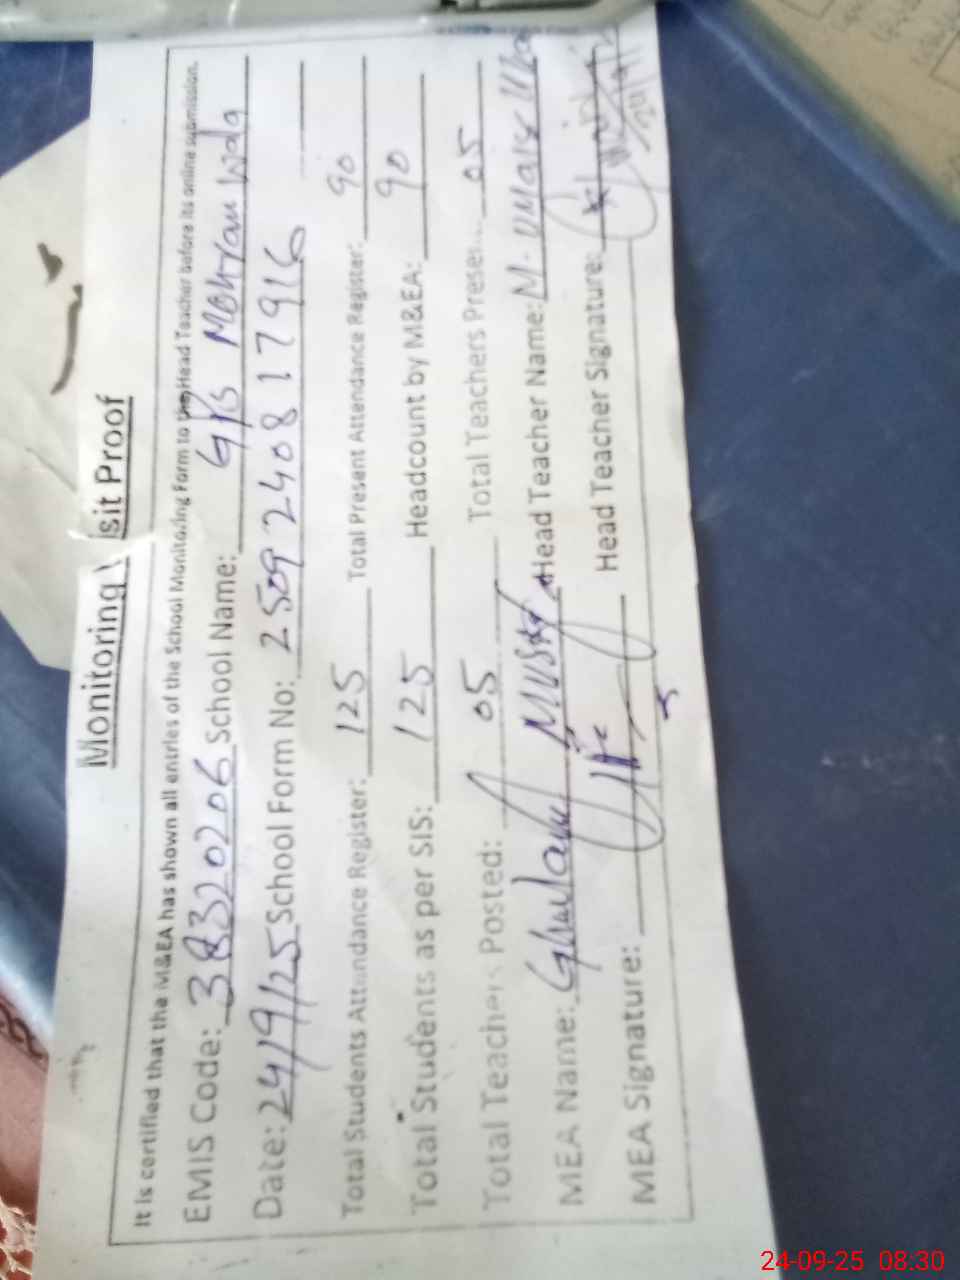 Monitoring Visit Proof
It is certified that the M&EA has shown all entries of the School Monitoring Form to the Head Teacher before its online submission.
EMIS Code: 38320206 School Name: GPS Mehran Wala
Date: 24/9/25 School Form No: 2509240817916
Total Students Attendance Register: 125 Total Present Attendance Register: 90
Total Students as per SIS: 125 Headcount by M&EA: 90
Total Teachers Posted: 05 Total Teachers Present: 05
MEA Name: Ghulam Head Teacher Name: M. Umair
MEA Signature: Head Teacher Signature:
24-09-25 08:30